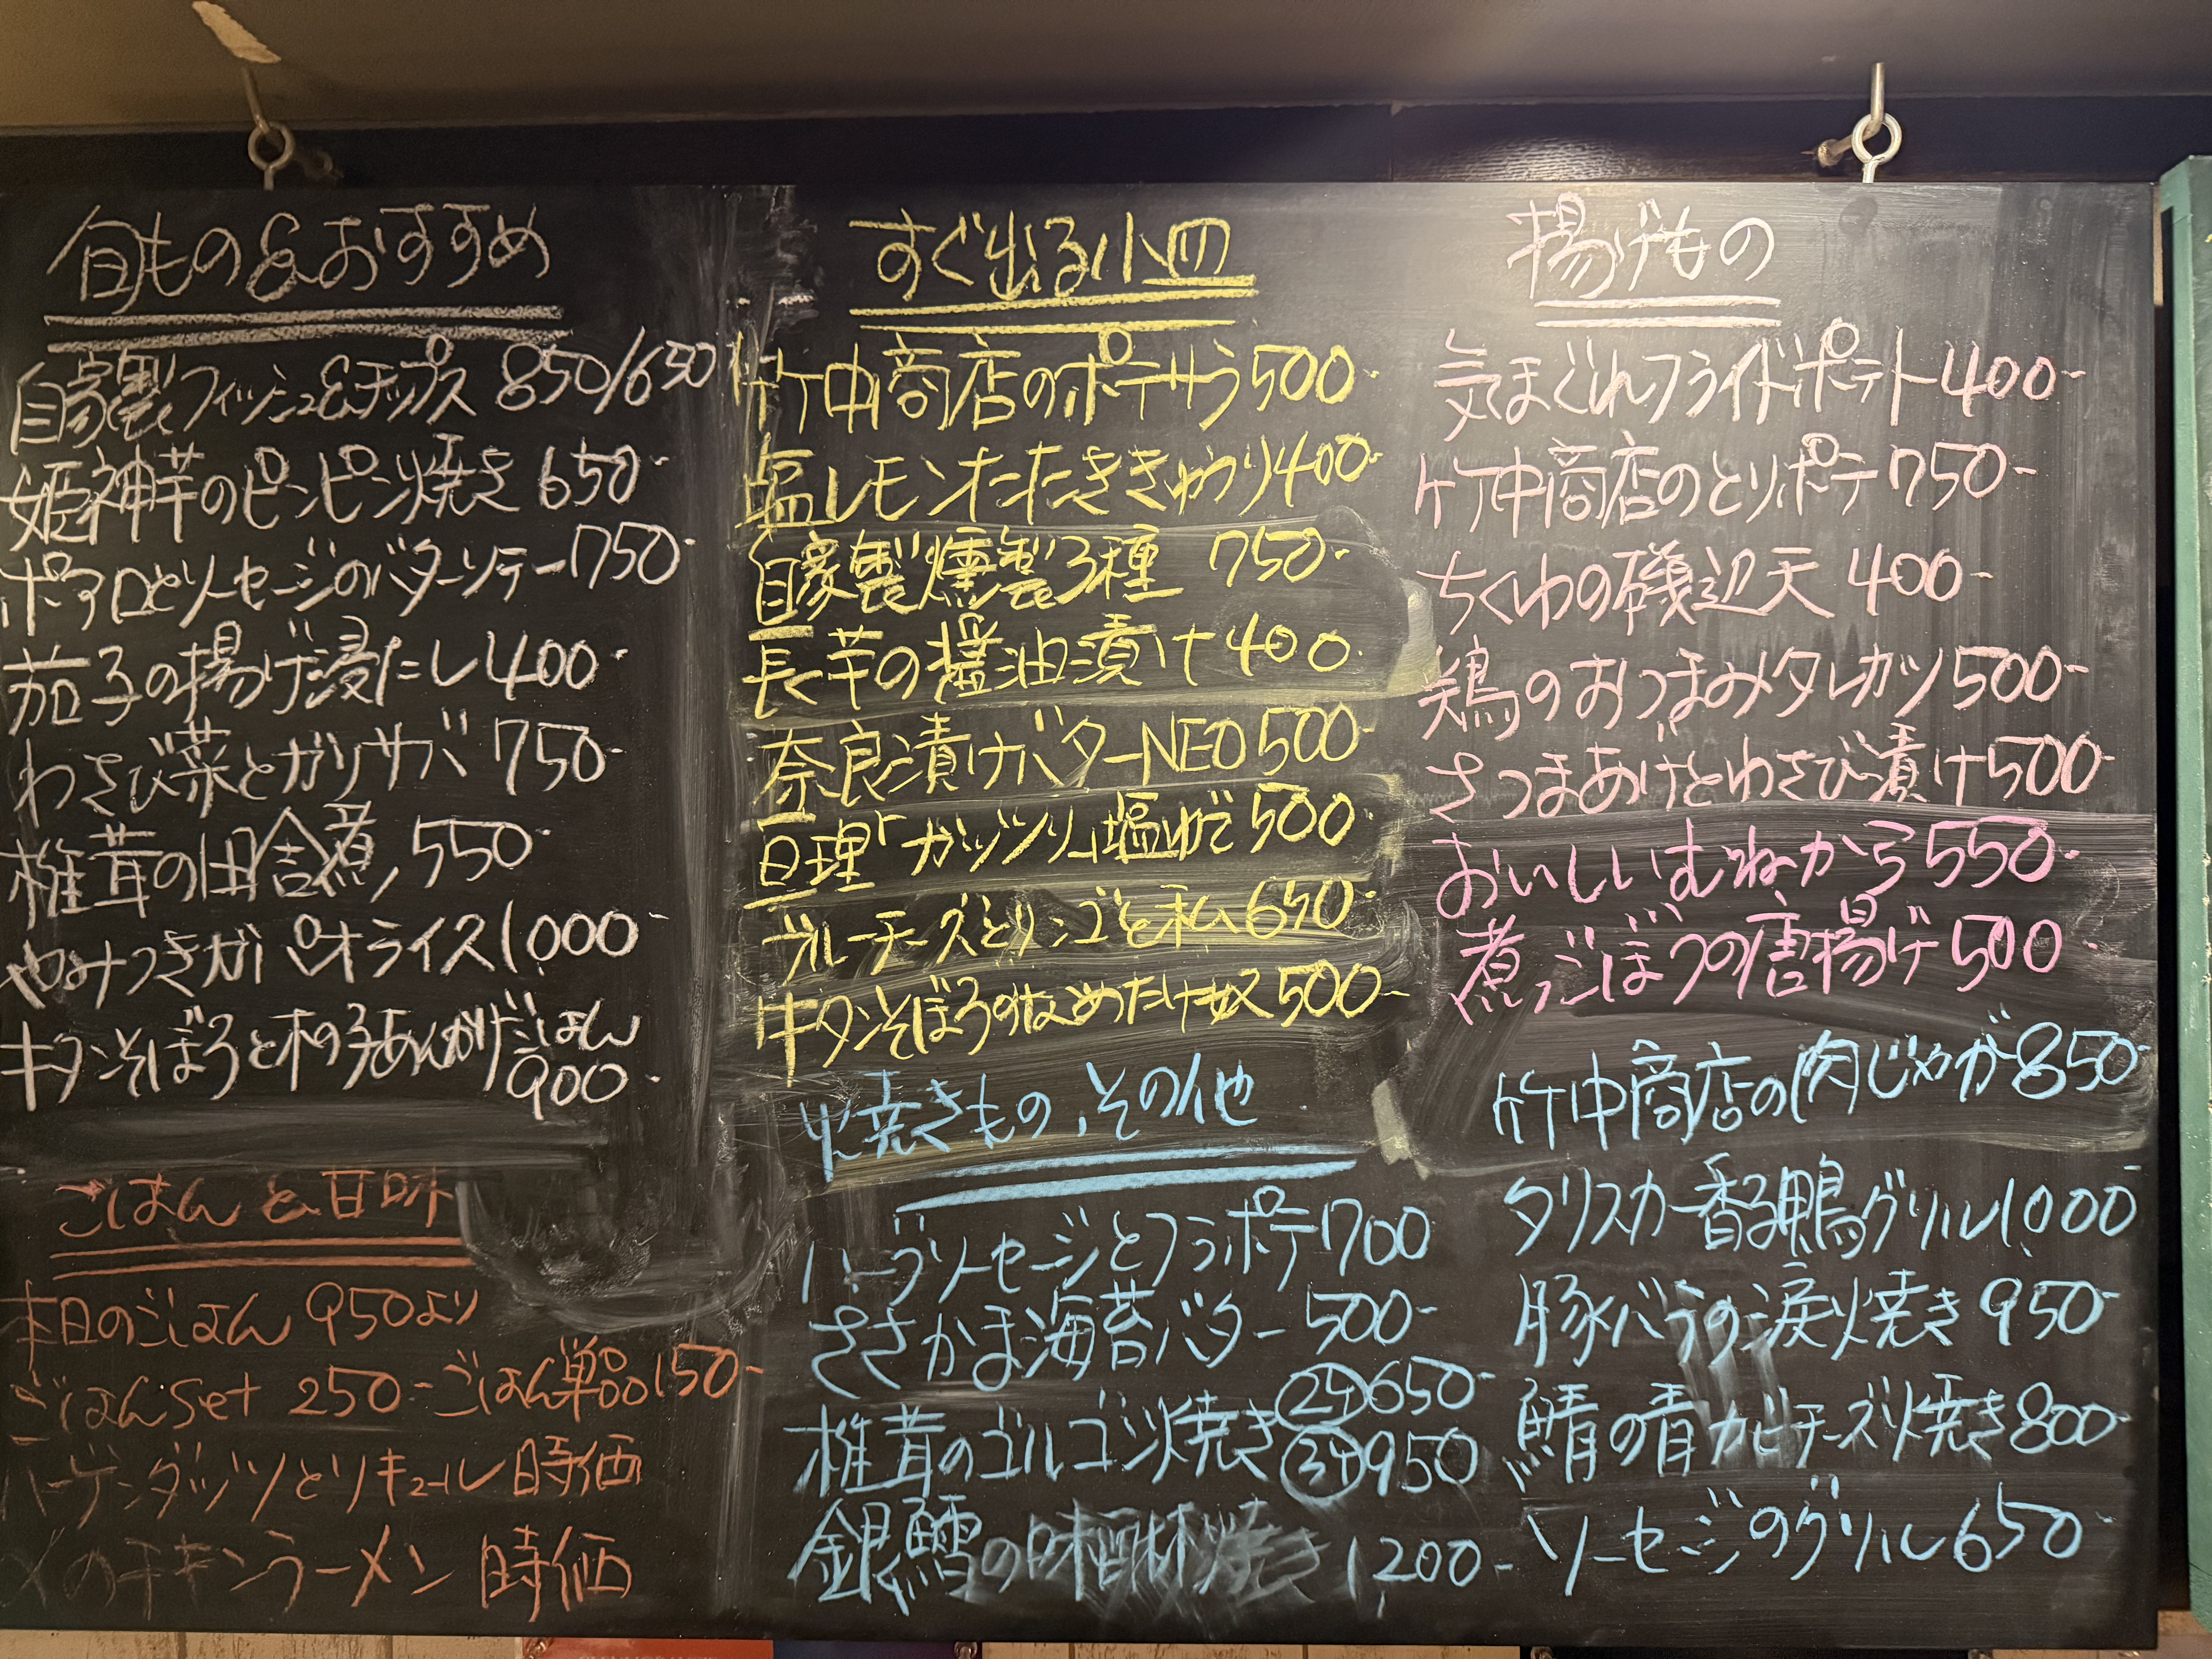 旬もの&おすすめ
自家製フィッシュ&チップス 850/650
姫神芋のピンピン焼き 650-
ポアロとソーセージのバターソテー 750-
茄子の揚げ浸たし 400-
わさび菜とガリサバ 750-
椎茸の田舎煮 550-
やみつきガパオライス 1,000-
牛タンそぼろと木の子あんかけごはん
900-
ごはんと甘味
本日のごはん 950より
ごはんset 250- ごはん単品 150-
ハーゲンダッツとリキュール 時価
〆のチキンラーメン 時価
すぐ出る小皿
竹中商店のポテサラ 500-
塩レモンたたききゅうり 400-
自家製燻製3種 750-
長芋の醤油漬け 400-
奈良漬けバターNEO 500-
亘理「ガッツリ」塩ゆで 500-
ブルーチーズとリンゴと私 650-
牛タンそぼろのなめたけ奴 500-
焼きもの、その他
ハーブソーセージとフラポテ 700
ささかま海苔バター 500-
椎茸のゴルゴン焼き 2ヶ 650-
3ヶ 950
銀鱈の味醂焼き 1,200-
揚げもの
気まぐれフライドポテト 400-
竹中商店のとりポテ 750-
ちくわの磯辺天 400-
鶏のおつまみタレカツ 500-
さつまあげとわさび漬け 500-
おいしいむねから 550-
煮ごぼうの唐揚げ 500-
竹中商店の肉じゃが 850-
タリスカー香る鴨グリル 1,000-
豚バラの涙焼き 950-
鯖の青カビチーズ焼き 800-
ソーセージのグリル 650-